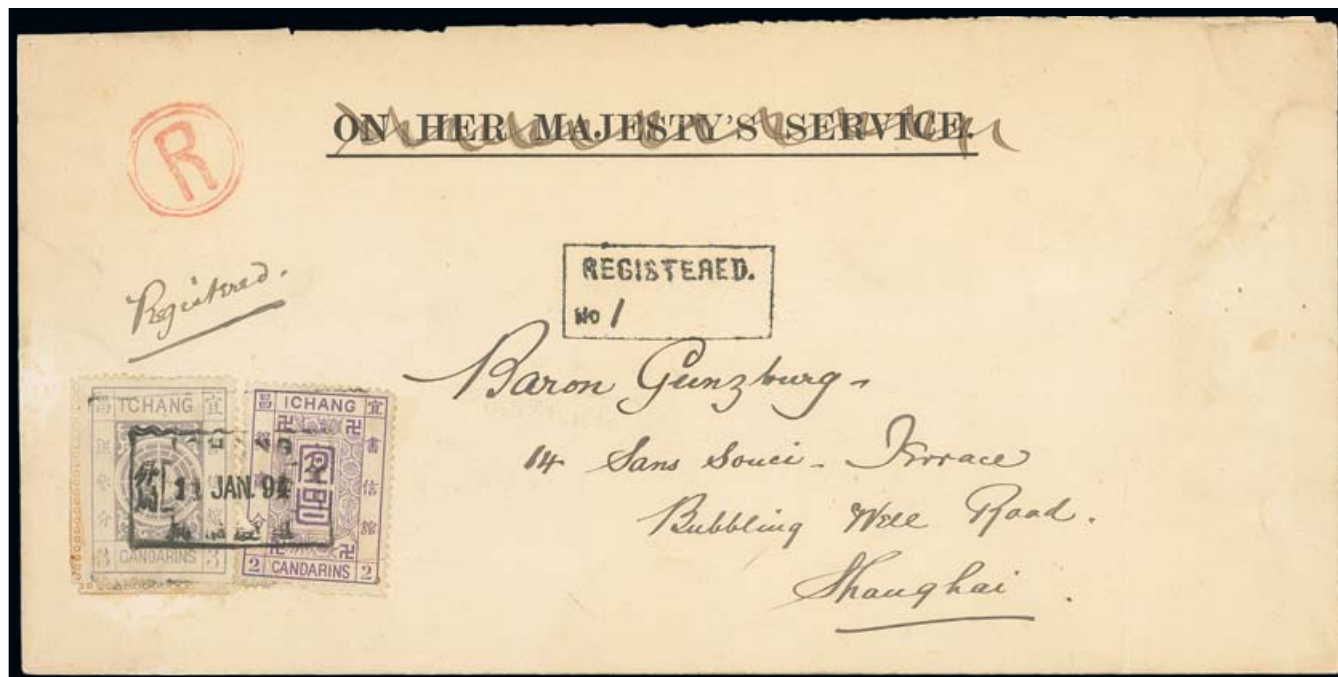 R
ON HER MAJESTY'S SERVICE.
Registered.
REGISTERED.
No 1
Baron Gunzburg -
14 Sans Souci - Terrace
Bubbling Well Road.
Shanghai.
昌 ICHANG 宜
分
11 JAN. 94
3 CANDARINS 3
昌 ICHANG 宜
書信館
分
2 CANDARINS 2